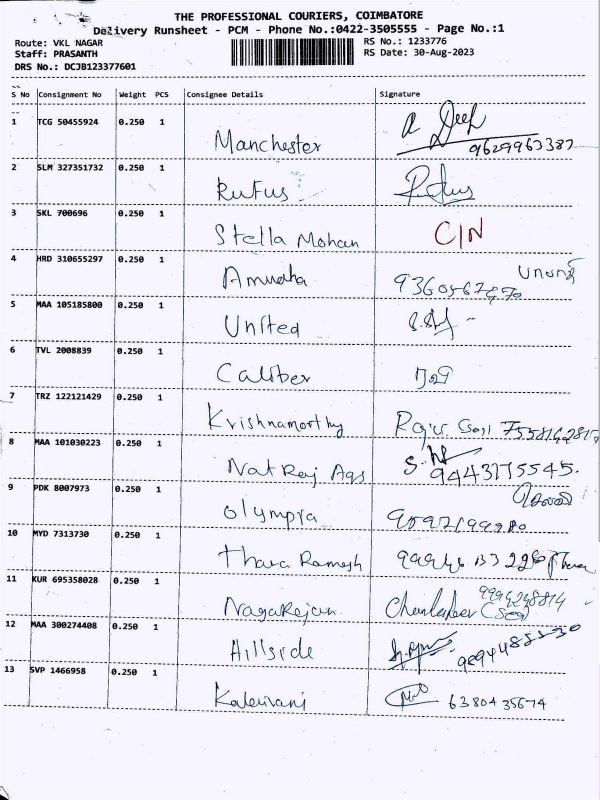 THE PROFESSIONAL COURIERS, COIMBATORE
Delivery Runsheet - PCM - Phone No.:0422-3505555 - Page No.:1
Route: VKL NAGAR
RS No.: 1233776
Staff: PRASANTH
RS Date: 30-Aug-2023
DRS No.: DCJB123377601
S No Consignment No Weight PCS Consignee Details Signature
1 TCG 50455924 0.250 1 Manchester
9629963387
2 SLM 327351732 0.250 1 Rufus
3 SKL 700696 0.250 1 Stella Mohan C/N
4 HRD 310655297 0.250 1 Amudha
5 MAA 105185800 0.250 1 United
6 TVL 2008839 0.250 1 Caliber
7 TRZ 122121429 0.250 1 Krishnamorthy
8 MAA 101030223 0.250 1 Nat Raj Ags 9443175545.
9 PDK 8007973 0.250 1 Olympia
10 MYD 7313730 0.250 1 Thara Ramesh
11 KUR 695358028 0.250 1 Nagarajan
12 MAA 300274408 0.250 1 Hillside
13 SVP 1466958 0.250 1 Kaleivani 6380435674